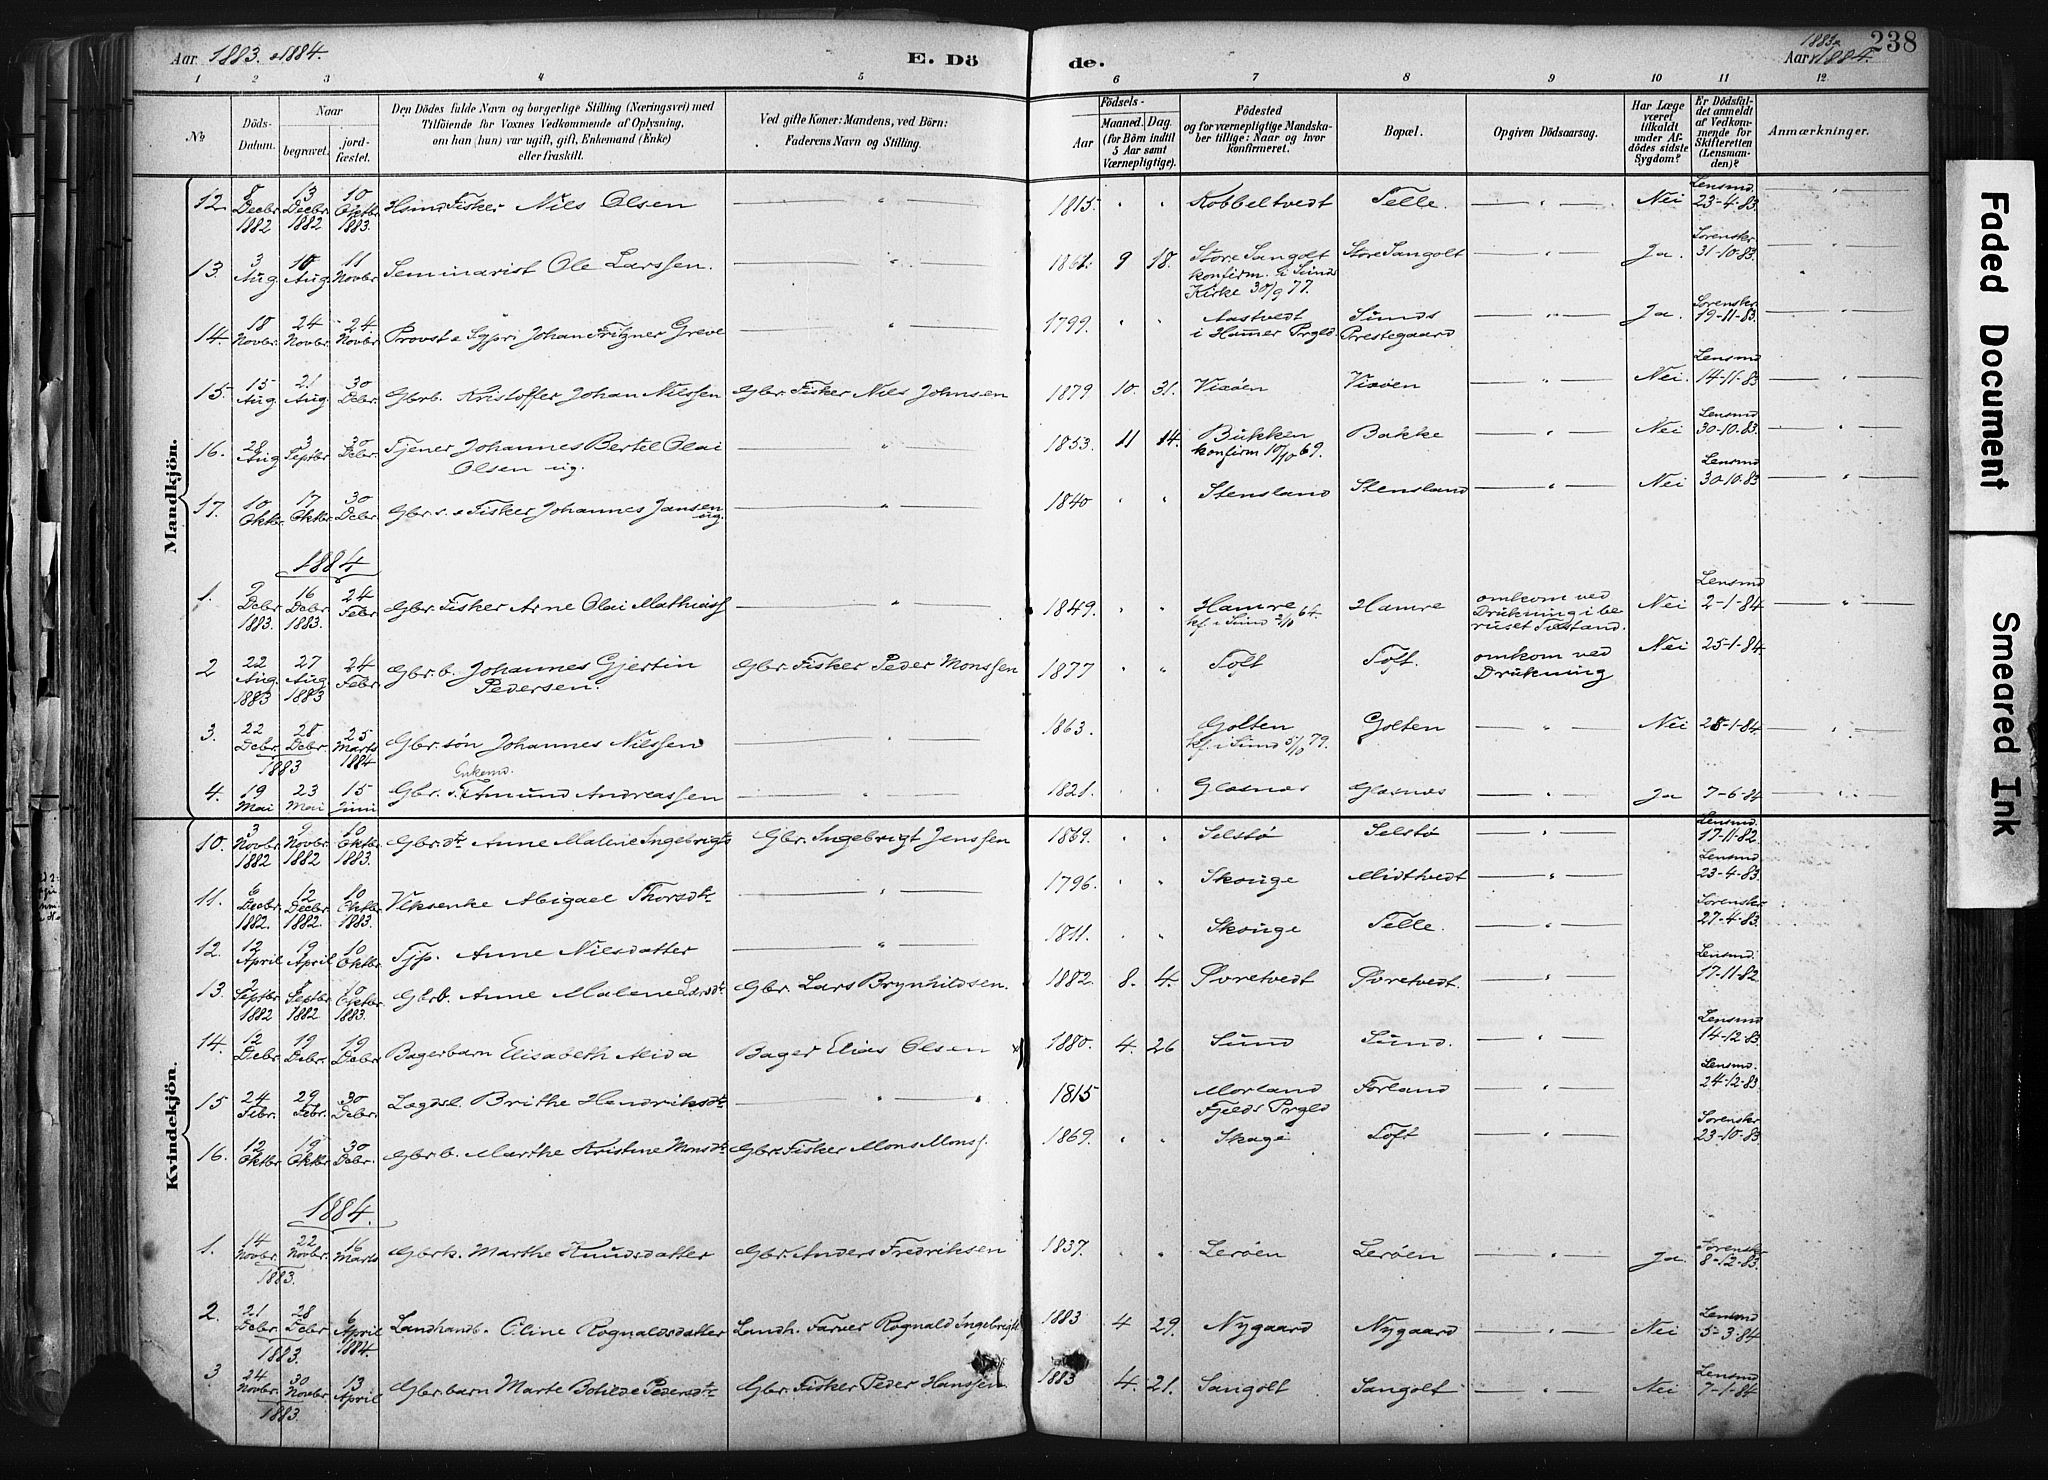 Aar 1883 & 1884.
E. Döde.
1883 & Aar 1884.
238
1 2 3 4 5 6 7 8 9 10 11 12
No
Döds-Datum.
Naar begravet. jordfæstet.
Den Dödes fulde Navn og borgerlige Stilling (Næringsvei) med Tilföiende for Voxnes Vedkommende af Oplysning, om han (hun) var ugift, gift, Enkemand (Enke) eller fraskilt.
Ved gifte Koner: Mandens, ved Börn: Faderens Navn og Stilling.
Födsels- Aar Maaned. Dag. (for Börn indtil 5 Aar samt Værnepligtige).
Födested og for værnepligtige Mandskaber tillige: Naar og hvor konfirmeret.
Bopæl.
Opgiven Dödsaarsag.
Har Læge været tilkaldt under Afdödes sidste Sygdom?
Er Dödsfaldet anmeldt af Vedkommende for Skifteretten (Lensmanden)?
Anmærkninger.
Mandkjön.
12. 8 Decbr 1882 13 Decbr 1882 10 Oktbr 1883. Hsmd Fisker Nils Olsen — " — 1815. " " Kobbeltvedt Telle. — " — Nei Lensmd 23-4-83. — " —
13. 3 Aug. 10 Aug. 11 Novbr. Seminarist Ole Larssen. — " — 1861. 9 18. Store Sangolt konfirm. i Sunds Kirke 30/9 77. Store Sangolt — " — Ja. Sorenskr 31-10-83. — " —
14. 18 Novbr. 24 Novbr. 24 Novbr Provst & Sgpr. Johan Fritzner Greve — " — 1799. " " Aastvedt i Hammer Prgld Sunds Prestegaard — " — Ja. Sorenskr 19-11-83. — " —
15. 15 Aug 21 Aug. 30 Debr. Gbrb. Kristoffer Johan Nilssen Gbr. Fisker Nils Johnsen 1879. 10. 31. Vixöen Vixöen — " — Nei. Lensmd 14-11-83 — " —
16. 28 Aug 3 Septbr 30 Debr. Tjener Johannes Bertel Olai Olsen ug. — " — 1853. 11 14. Bukken konfirm 10/10 69. Bakke — " — Nei Lensmd 30-10-83. — " —
17. 10 Oktbr 17 Oktbr 30 Debr. Gbr. s. & Fisker Johannes Jansen ug. — " — 1840 " " Stensland Stensland — " — Nei Lensmd 30-10-83 — " —
1884
1. 9 Debr 1883. 16 Debr 1883. 24 Febr Gbr. Fisker Arne Olai Mathiass — " — 1849. " " Hamre kf. i Sund 2/10 64. Hamre omkom ved Drukning i beruset Tilstand. Nei Lensmd 2-1-84 — " —
2 22 Aug. 1883 27 Aug 1883 24 Febr Gbr. b. Johannes Gjertin Pedersen. Gbr. Fisker Peder Monssen 1877 " " Toft Toft. omkom ved Drukning Nei 25-1-84
3. 22 Debr. 28 Debr. 1883 25 Marts 1884 Gbr. søn Johannes Nilssen — " — 1863. Golten kf. i Sund 5/10 79. Golten — " — Nei 28-1-84 — " —
4. 19 Mai 23 Mai 15 Juni Gbr. Enkemd. Amund Andreassen — " — 1821. Glæsnæs Glæsnæs — " — Ja 7-6-84 — " —
Kvindekjön.
10. 3 Novbr. 1882 9 Novbr. 1882 10 Oktbr. 1883. Gbr. dtr Anne Malene Ingebrigts Gbr. Ingebrigt Jenssen 1869. " " Selstø Selstø — " — Lensmd 17-11-82.
11. 6 Decbr 1882. 12 Decbr 1882. 10 Oktbr. 1883. Abigael Thorsdtr — " — 1796. " " Skouge Midtvedt — " — Lensmd 23-4-83.
12. 12 April 19 April 10 Oktbr. Tjp. Anne Nilsdatter — " — 1811. " Skouge Telle. — " — Sorenskr 27-4-83.
13. 2 Septbr 1882 8 Septbr 1882. 10 Oktbr 1883. Gbrb. Anne Malene Larsdtr Gbr. Lars Brynhildsen. 1882. 8. 4. Svretvedt Svretvedt. — " — Lensmd. 17-11-82
14. 12 Debr. 19 Debr. 19 Debr Bagerbarn Elisabeth Alida Bager Elias Olsen 1880. 4. 26 Sund Sund. — " — Lensmd 14-12-83.
15 24 Febr. 29 Febr. 30 Debr. Lægdsl. Brithe Hendriksdtr — " — 1815 Morland Fjelds Prgld Forland — " — Lensmd. 24-12-83.
16. 12 Oktbr 19 Oktbr 30 Debr. Gbr. b. Marthe Kristine Monsdtr Gbr. Fisker Mons Monss. 1869. " " Skage Toft — " — Sorenskr 23-10-83
1884.
1. 14 Novbr. 22 Novbr. 1883. 16 Marts Gbrk. Marthe Knudsdatter Gbr. Anders Fredriksen 1837. " " Lerøen Lerøen — " — Ja. Sorenskr 8-12-83.
2. 21 Debr 28 Debr 1883. 6 April 1884. Landhandb. Oline Rognaldsdatter Landh. Farver Rognald Ingebrigts 1883 4 29. Nygaard Nygaard — " — Nei Lensmd 5-3-84
3 24 Novbr 30 Novbr. 1883. 13 April Gbr. barn Marte Bothilde Pedersdtr Gbr. Fisker Peder Hanssen 1883 4. 21. Sangolt Sangolt — " — Nei Lensmd 7-1-84
Faded Document
Smeared Ink